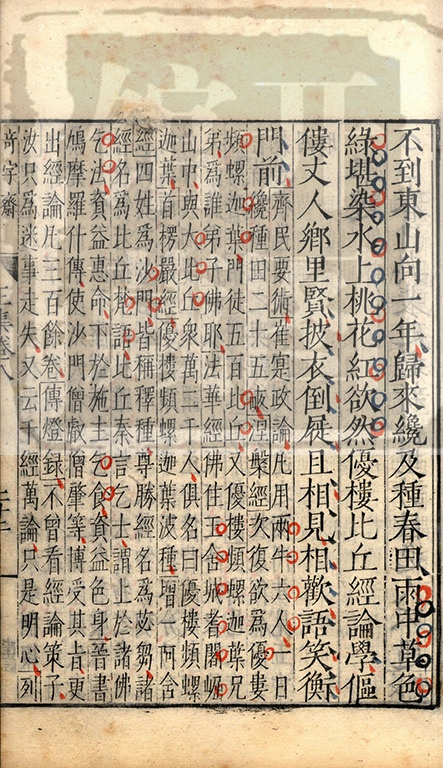 不到東山向一年歸來纔及種春田雨中草色
綠堪染水上桃花紅欲然優樓比丘經論學傴
僂丈人鄉里賢披衣倒屣且相見相歡語笑衡
門前
齊民要術崔寔政論凡用兩牛六人一日
纔種田二十五畝涅槃經次復欲爲優婁
頻螺迦葉門徒五百比丘又優樓頻螺迦葉兄
弟爲誰弟子佛耶法華經佛住王舍城耆闍崛
山中與大比丘衆萬二千人俱名曰優樓頻螺
迦葉首楞嚴經優樓頻螺迦葉波種增一阿含
經四姓爲沙門皆稱釋種尊勝經名爲苾芻諸
經名爲比丘梵語比丘秦言乞士謂上於諸佛
乞法資益惠命下於施主乞食資益色身晉書
鳩摩羅什傳使沙門僧叡僧肇等傳受其旨更
出經論凡三百餘卷傳燈録不曾看經論策子
汝只爲迷事走失又云千經萬論只是明心列
奇字齋